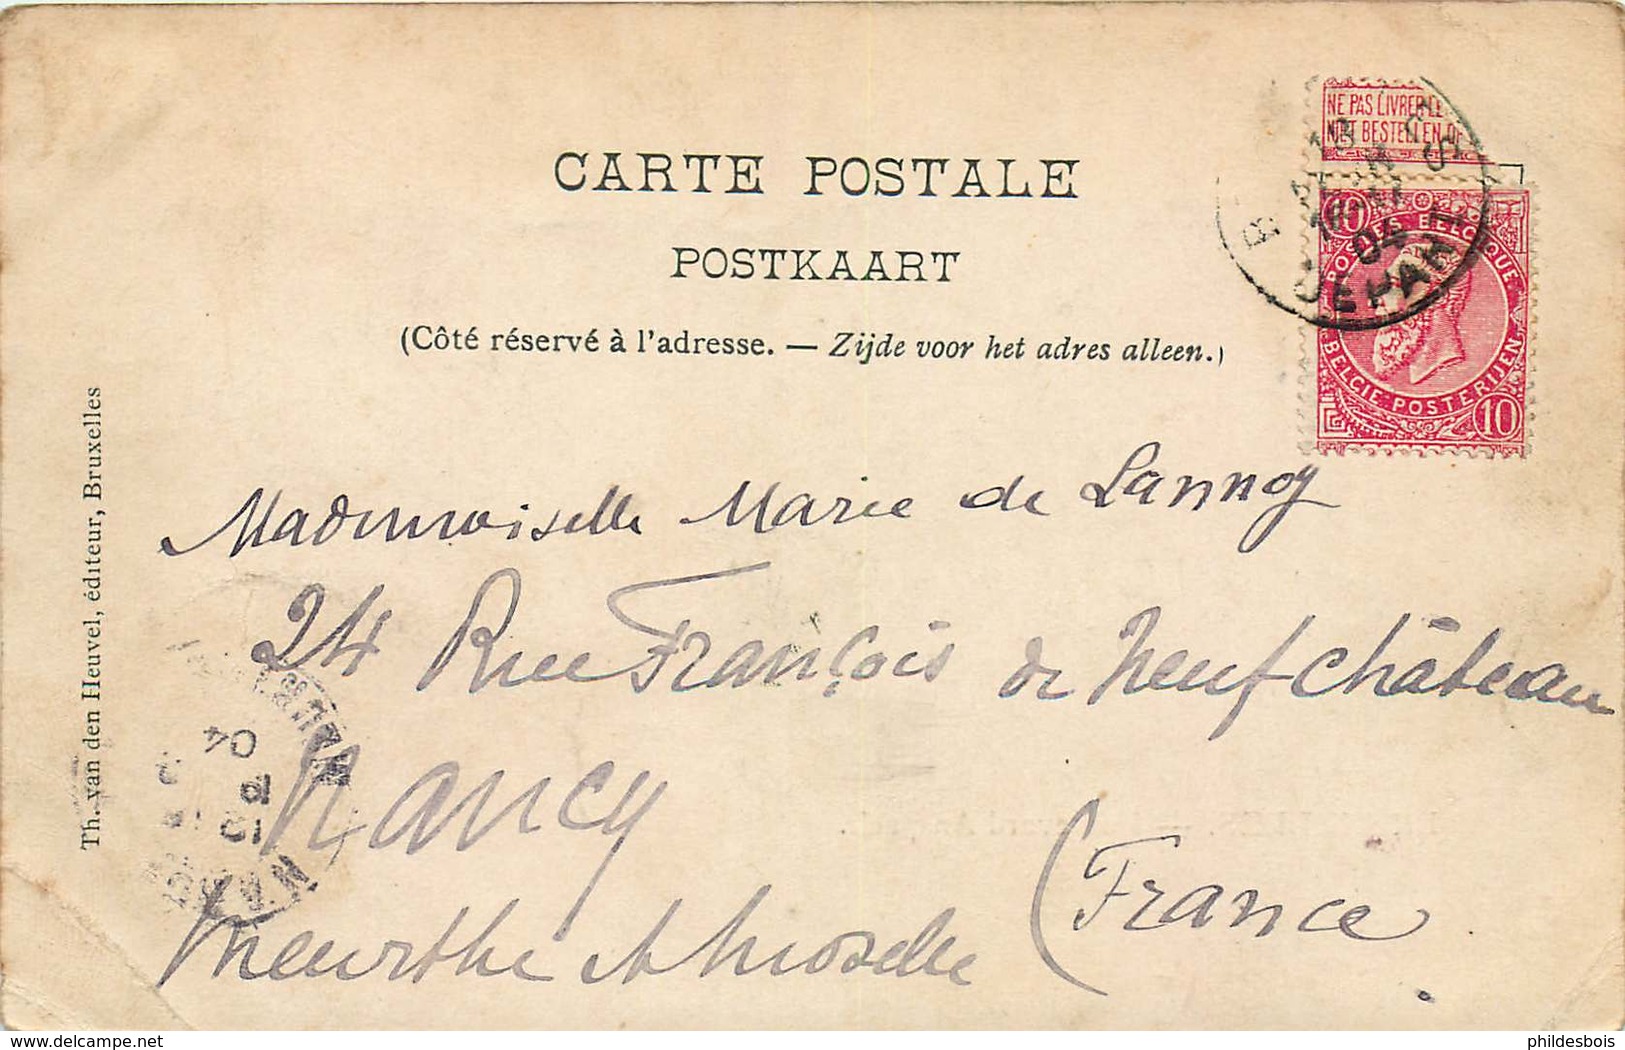 CARTE POSTALE
POSTKAART
(Côté réservé à l'adresse. — Zijde voor het adres alleen.)
NE PAS LIVRER LE
NIET BESTELLEN OP
10
POSTES BELGIQUE
BELGIE POSTERIJEN
10
04
DEPART
Mademoiselle Marie de Lannoy
24 Rue François de Neufchâteau
Nancy
Meurthe et Moselle (France
04
Th. van den Heuvel, éditeur, Bruxelles
delcampe.net
phildesbois